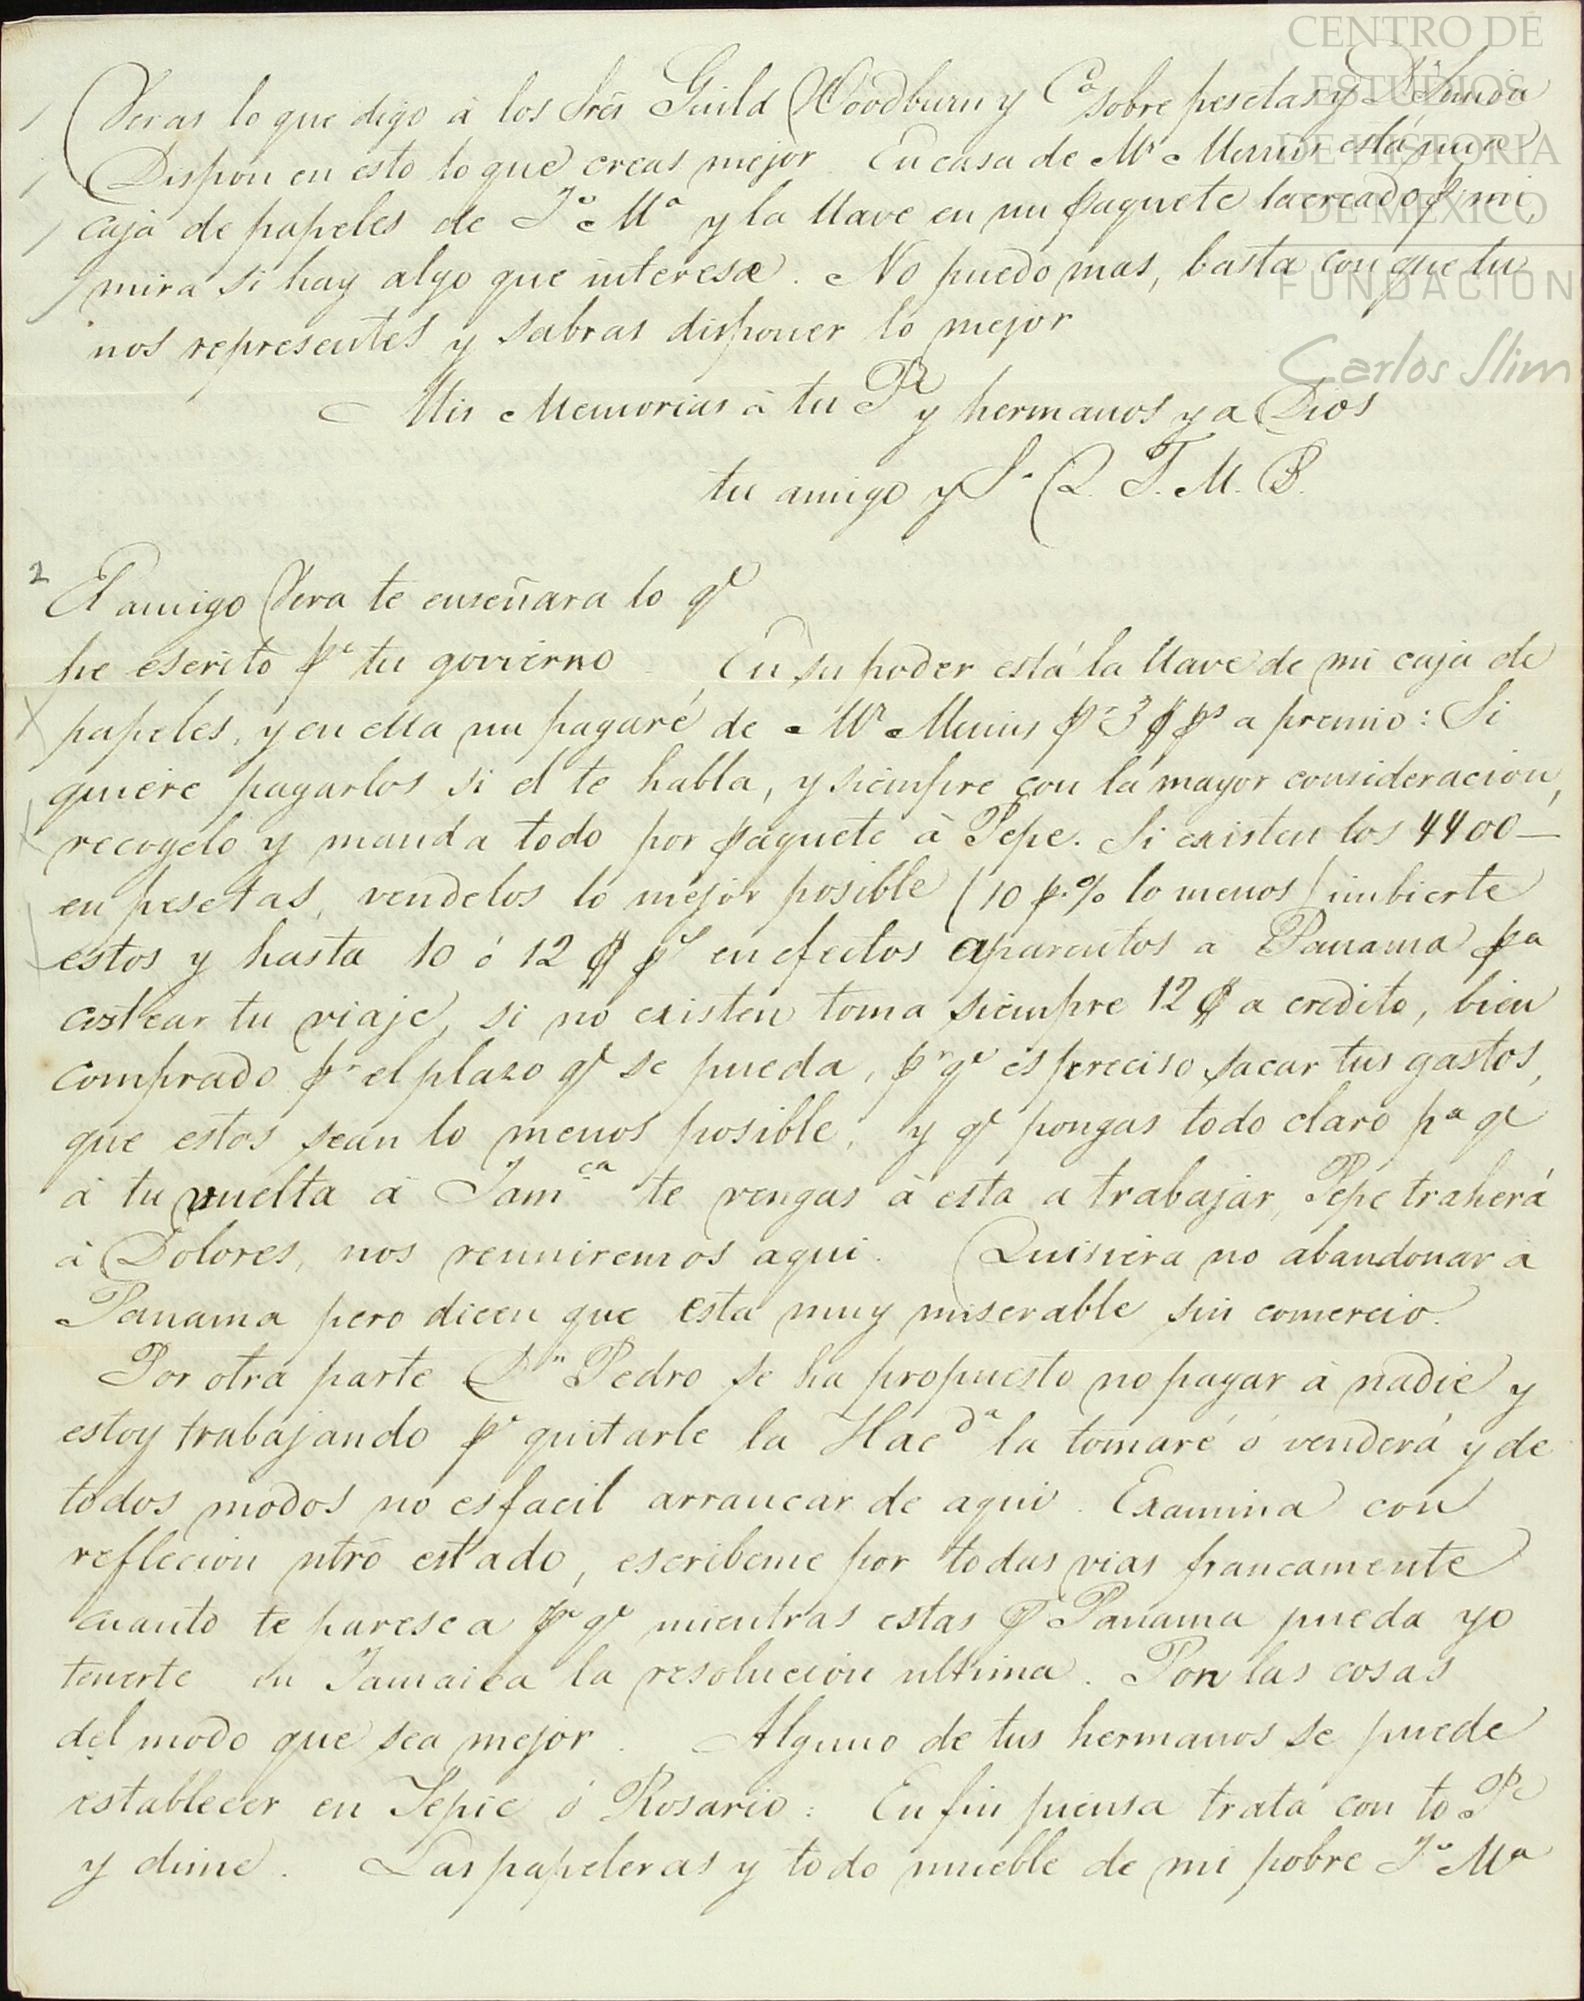 CENTRO DE
ESTUDIOS
DE HISTORIA
DE MÉXICO
FUNDACIÓN
Carlos Slim
Veras lo que digo á los Srēs Guild Woodburn y Cª sobre pesetas y
Dispon en esto lo que creas mejor. En casa de Mr está una
caja de papeles de Jº Mª y la llave en un paquete lacreado pr mi,
mira si hay algo que interese. No puedo mas, basta con que tu
nos representes y sabras disponer lo mejor
Mis Memorias á tu Pe y hermanos y a Dios
tu amigo y S. Q. T. M. B.
2 El amigo Vera te enseñara lo qe
he escrito pa tu govierno. En su poder está la llave de mi caja de
papeles, y en ella un pagaré de Mr pr 3 $ ps a premio: Si
quiere pagarlos si el te habla, y siempre con la mayor consideracion,
recogelo y manda todo por paquete á Pepe. Si existen los 4400—
en pesetas, vendelos lo mejor posible (10 p.% lo menos) imbierte
estos y hasta 10 ó 12 $ ps en efectos aparentos a Panama pa
costear tu viaje, si no existen toma siempre 12 $ a credito, bien
comprado pr el plazo qe se pueda, pr qe es preciso sacar tus gastos,
que estos sean lo menos posible, y qe pongas todo claro pa qe
á tu vuelta á Jamca te vengas á esta a trabajar, Pepe traherá
á Dolores, nos reuniremos aqui. Quisiera no abandonar á
Panama pero dicen que esta muy miserable sin comercio.
Por otra parte Dn Pedro se ha propuesto no pagar á nadie y
estoy trabajando pr quitarle la Hacda la tomaré ó venderá y de
todos modos no es facil arrancar de aqui. Examina con
reflecion ntrō estado, escribeme por todas vias francamente
cuanto te paresca pr qe mientras estas Panama pueda yo
tenerte en Jamaica la resolucion ultima. Pon las cosas
del modo que sea mejor. Alguno de tus hermanos se puede
establecer en Tepic ó Rosario: En fin piensa trata con to Pe
y dime. Las papeleras y todo mueble de mi pobre Jº Mª